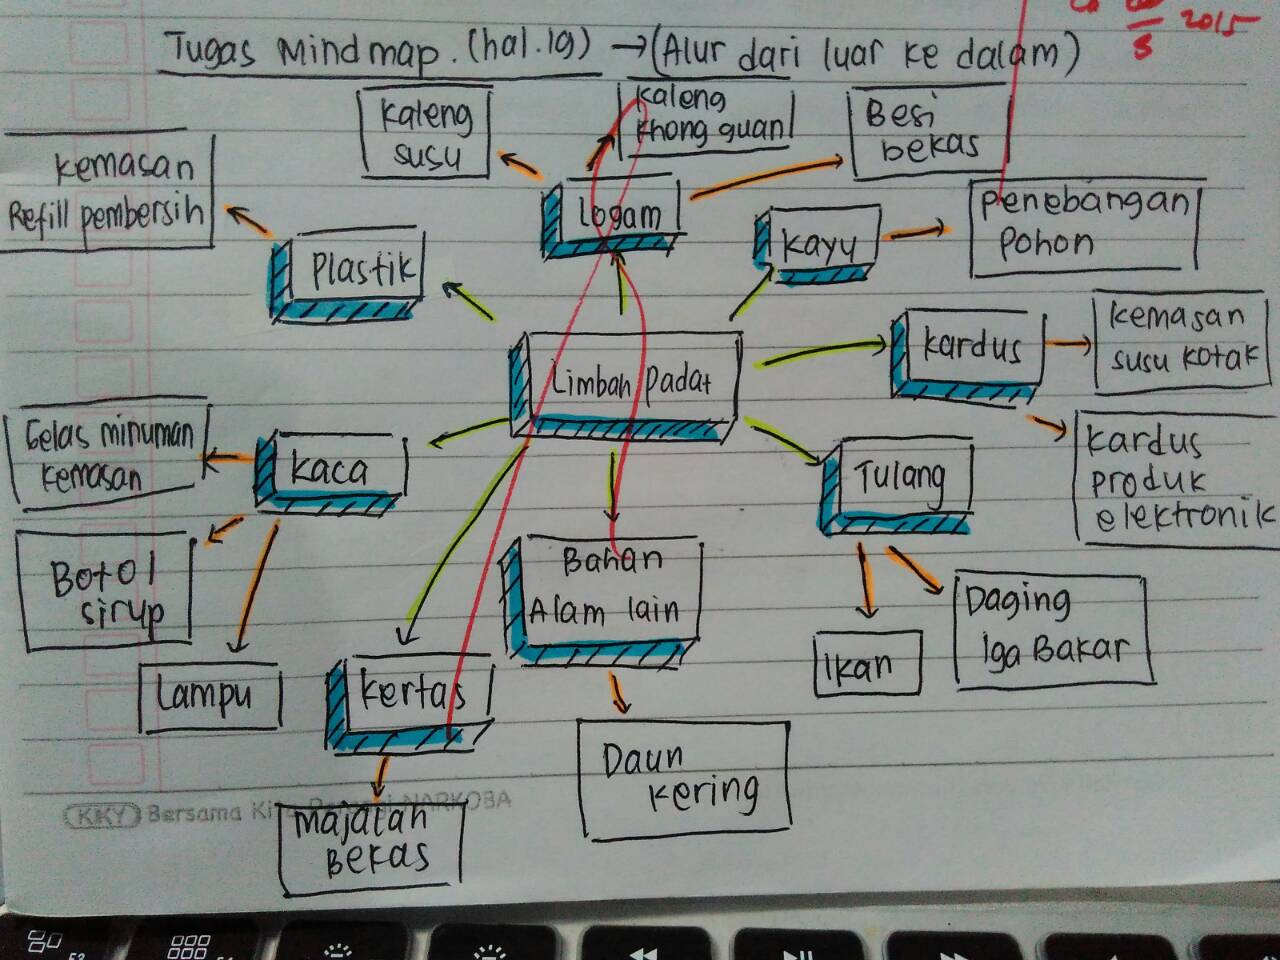 Tugas Mindmap. (hal.19) → (Alur dari luar ke dalam)
2015
Kaleng
susu
Kaleng
Khong guan
Besi
bekas
Kemasan
Refill pembersih
Logam
Penebangan
Pohon
Plastik
Kayu
Kardus
Kemasan
susu kotak
Limbah Padat
Gelas minuman
Kemasan
Kaca
Tulang
Kardus
produk
elektronik
Botol
sirup
Bahan
Alam lain
Ikan
Daging
Iga Bakar
Lampu
Kertas
Daun
Kering
KKY Bersama Ki NARKOBA
Majalah
Bekas